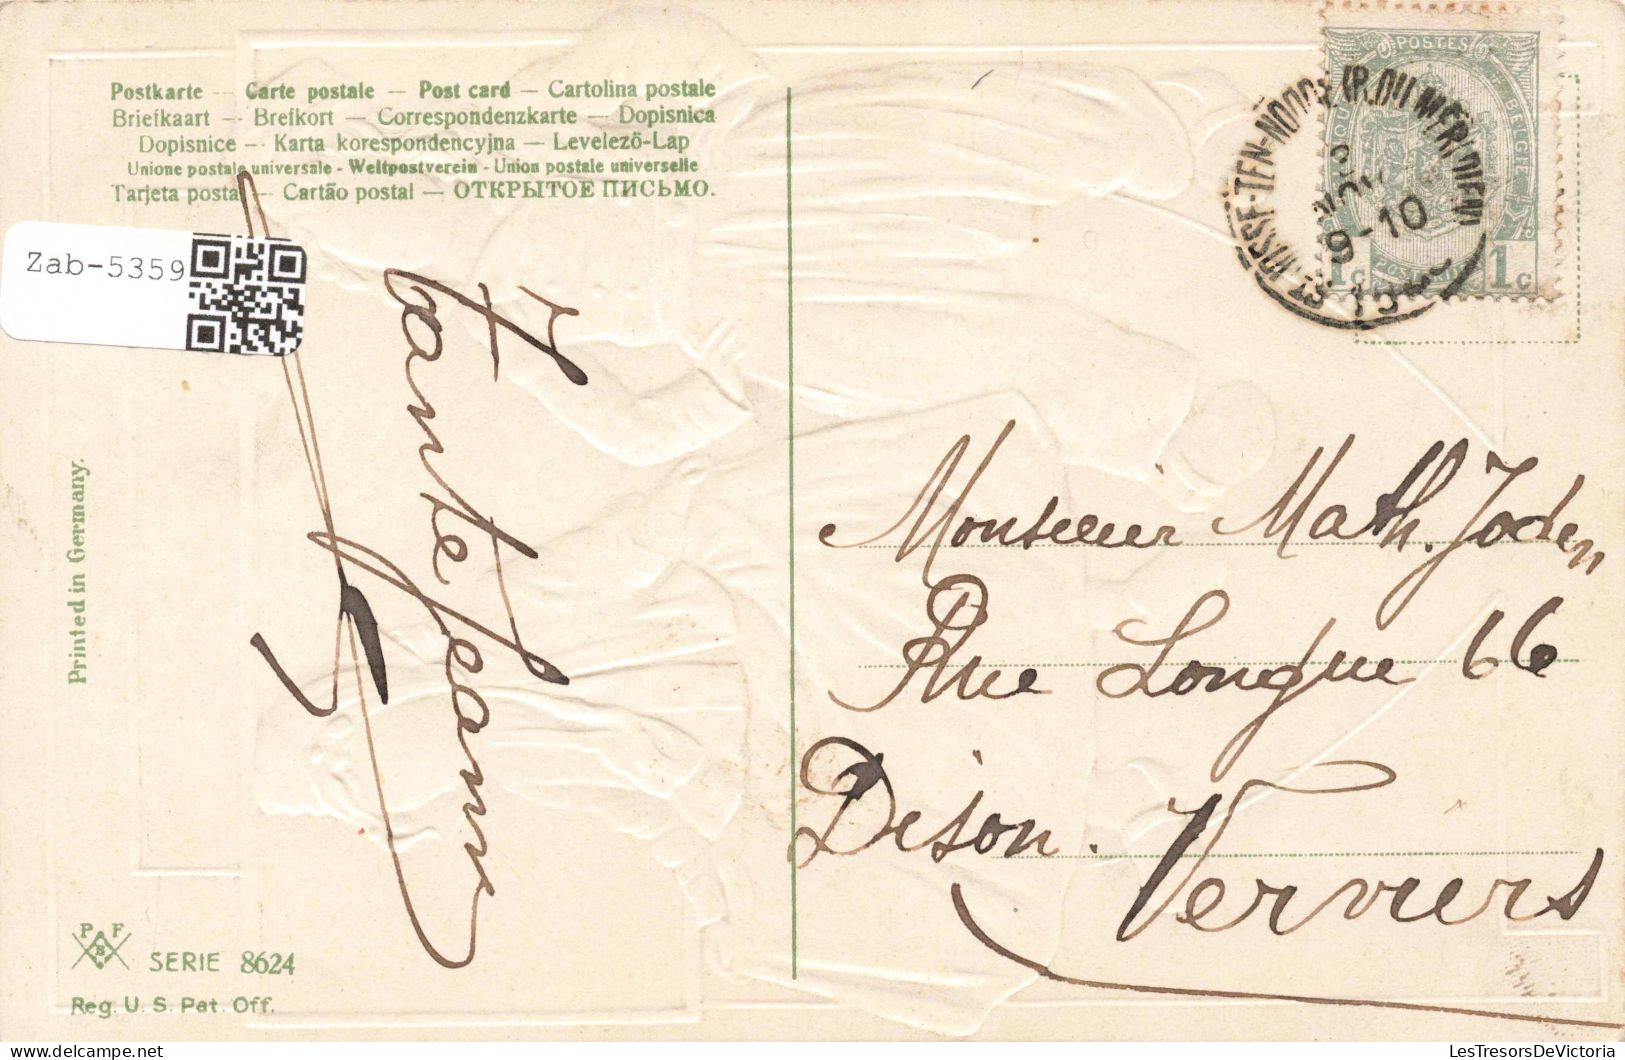 Postkarte — Carte postale — Post card — Cartolina postale
Briefkaart — Brefkort — Correspondenzkarte — Dopisnica
Dopisnice — Karta korespondencyjna — Levelezõ-Lap
Unione postale universale - Weltpostverein - Union postale universelle
Tarjeta postal — Cartão postal — ОТКРЫТОЕ ПИСЬМО.
Zab-5359
Printed in Germany.
Tante Jeanne
POSTES
BELGIQUE
1c 1c
ST. JOSSE-TEN-NOODE (R.DU MÉRIDIEN)
NOV
9-10
Monsieur Math. Joden
Rue Longue 66
Dison. Verviers
P F
B
SERIE 8624
Reg. U. S. Pat. Off.
LesTresorsDeVictoria